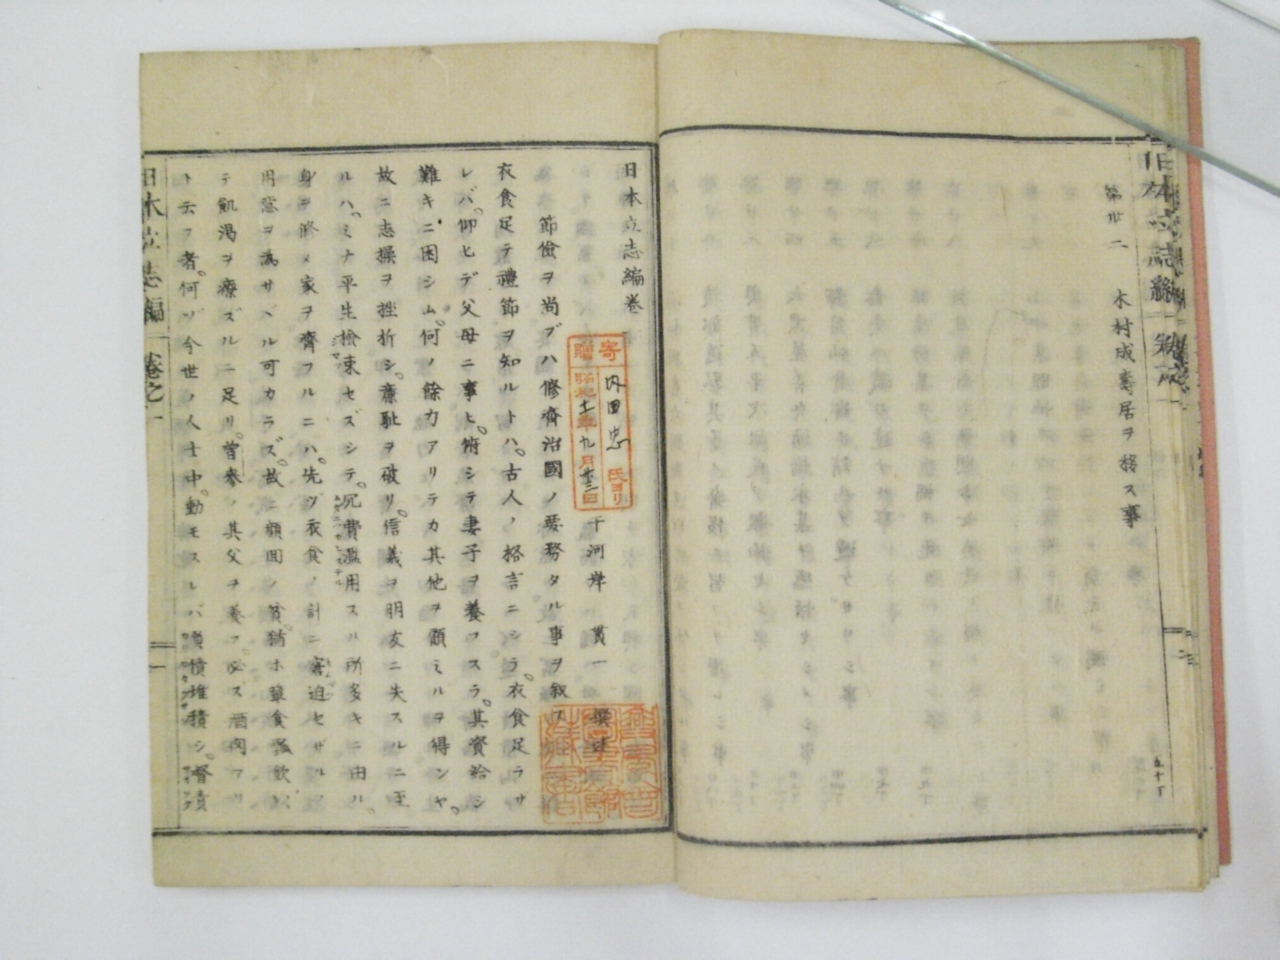 第廿二 木村成壽居ヲ移ス事
五十丁
日本立志編卷
千河岸 貫一 撰述
節儉ヲ尚ブハ修齊治國ノ要務タル事ヲ叙ス
衣食足テ禮節ヲ知ルトハ。古人ノ格言ニシラ。衣食足ラサ
レバ。仰ヒデ父母ニ事ヒ。俯シテ妻子ヲ養フスラ。其資給シ
難キニ困シム。何ノ餘力アリテカ其他ヲ顧ミルヲ得ンヤ。
故ニ志操ヲ挫折シ。廉耻ヲ破リ。信義ヲ朋友ニ失スルニ至
ルハ。ミナ平生撿束セズシテ。冗費濫用スル所多キニ由ル。
身ヲ脩メ家ヲ齊フルニハ。先ヅ衣食ノ計ニ窘迫セザルノ
用意ヲ為サヾル可カラズ。故ニ顔回ノ貧猶ホ簞食瓢飲以
テ飢渇ヲ療ズルニ足リ。曾參ノ其父ヲ養フ。必ス酒肉アリ
ト云フ者。何ゾ今世ノ人士中。動モスレバ債堆積シ。督責
日本立志編 卷之一
一
寄贈
内田忠 氏ヨリ
昭和十一年九月廿三日